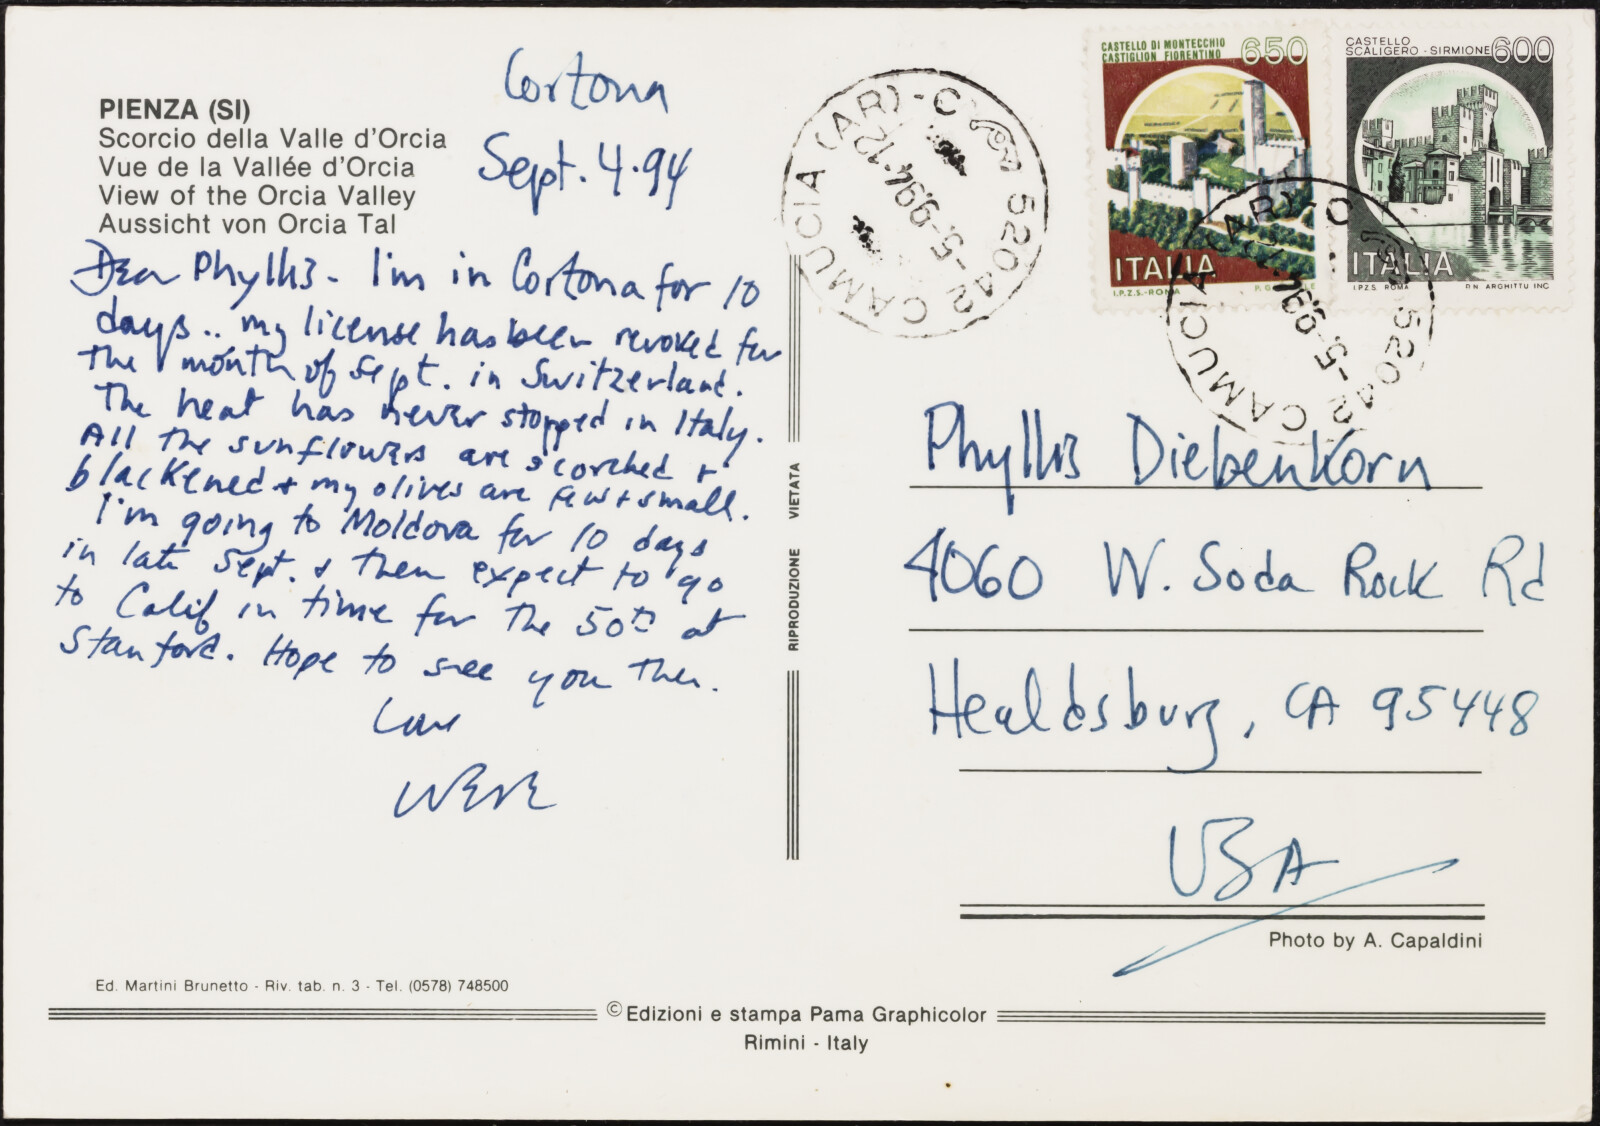 PIENZA (SI)
Scorcio della Valle d'Orcia
Vue de la Vallée d'Orcia
View of the Orcia Valley
Aussicht von Orcia Tal
Cortona
Sept. 4.94
Dear Phyllis - I'm in Cortona for 10
days.. my license has been revoked for
the month of Sept. in Switzerland.
The heat has never stopped in Italy.
All the sunflowers are scorched +
blackened + my olives are few + small.
I'm going to Moldova for 10 days
in late Sept. & then expect to go
to Calif in time for the 50th at
Stanford. Hope to see you then.
Love
Ed. Martini Brunetto - Riv. tab. n. 3 - Tel. (0578) 748500
RIPRODUZIONE VIETATA
52042 CAMUCIA (AR) - C
5-9.94.12
CASTELLO DI MONTECCHIO
CASTIGLION FIORENTINO
650
ITALIA
I.P.Z.S.-ROMA
CASTELLO
SCALIGERO - SIRMIONE
600
ITALIA
I.P.Z.S. ROMA
P.N. ARGHITTU INC
52042 CAMUCIA (AR) - C
5-9.94
Phyllis Diebenkorn
4060 W. Soda Rock Rd
Healdsburg, CA 95448
USA
Photo by A. Capaldini
© Edizioni e stampa Pama Graphicolor
Rimini - Italy